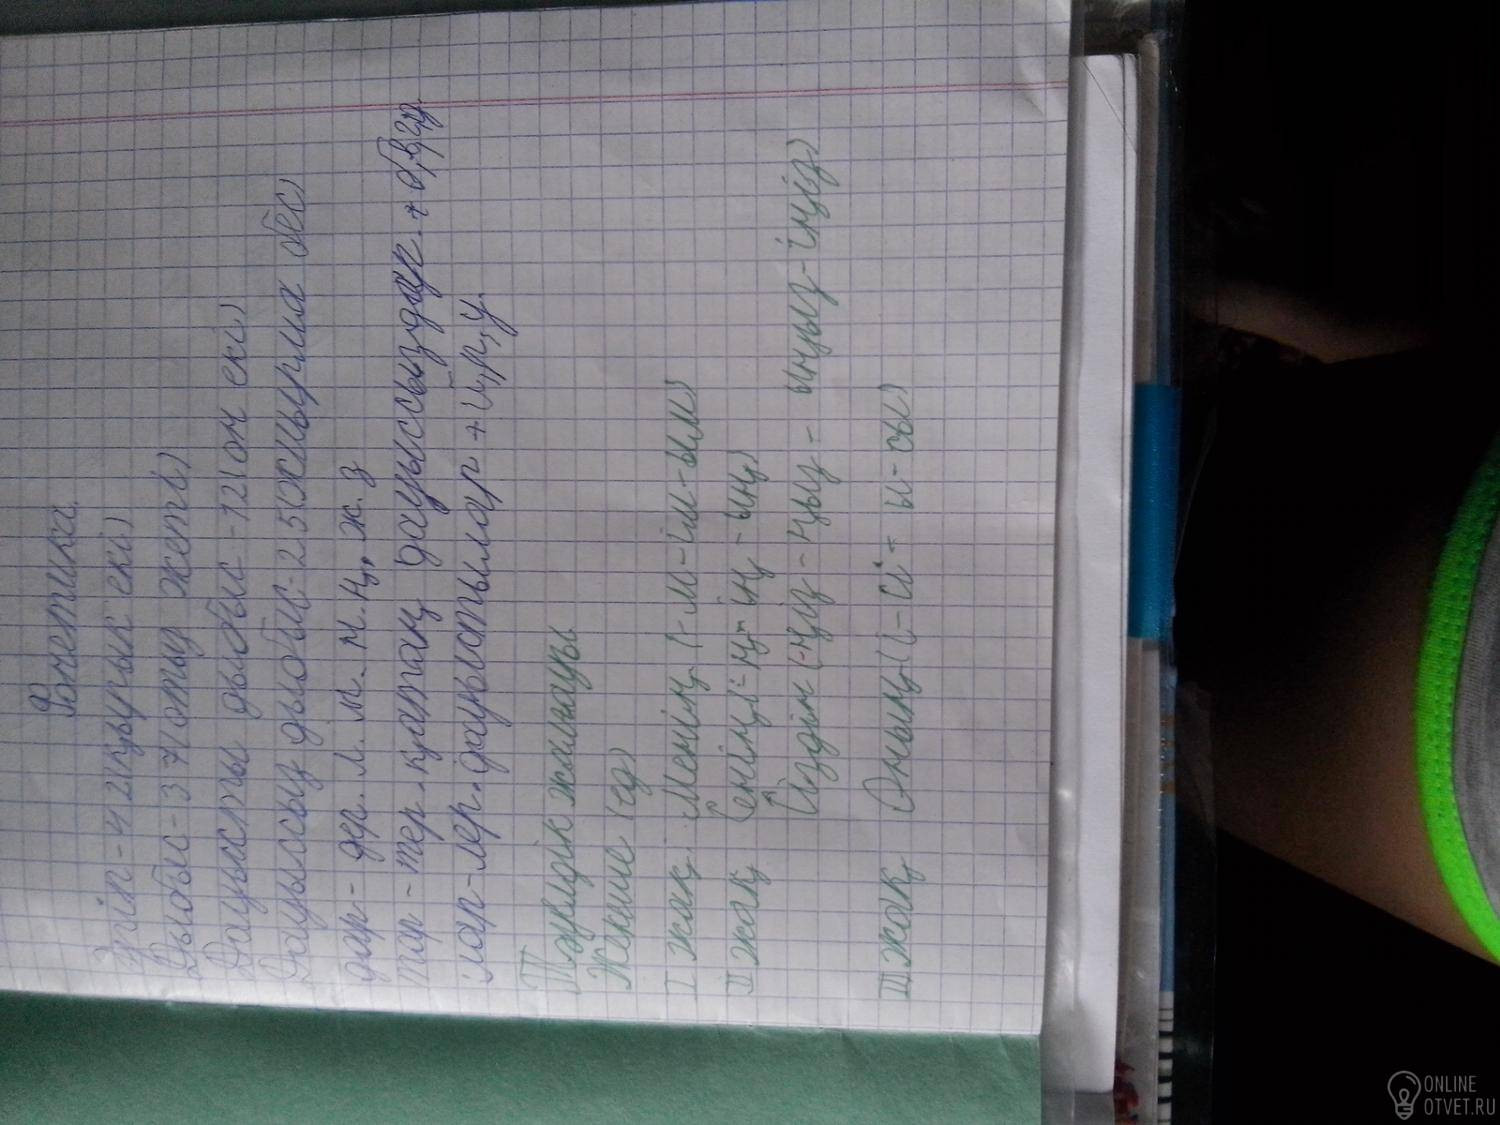 Фонетика.
Әріп-42(қырық екі)
Дыбыс-37(отыз жеті)
Дауысты дыбыс-12(он екі)
Дауыссыз дыбыс-25(жиырма бес)
дар-дер. л. м. н. ң, ж. з
тар-тер. қатаң дауыссыздар. + б, в, г, д.
лар-лер. дауыстылар + й, р, у.
Тәуелдік жалғауы.
Жекше (ед)
I жақ. Менің (-м-ім-ым)
II жақ Сенің(-ң-ің-ың)
Сіздің (-ңіз-ңыз-ыңыз-іңіз)
III жақ Оның(і-сі-ы-сы)
ONLINE
OTVET.RU